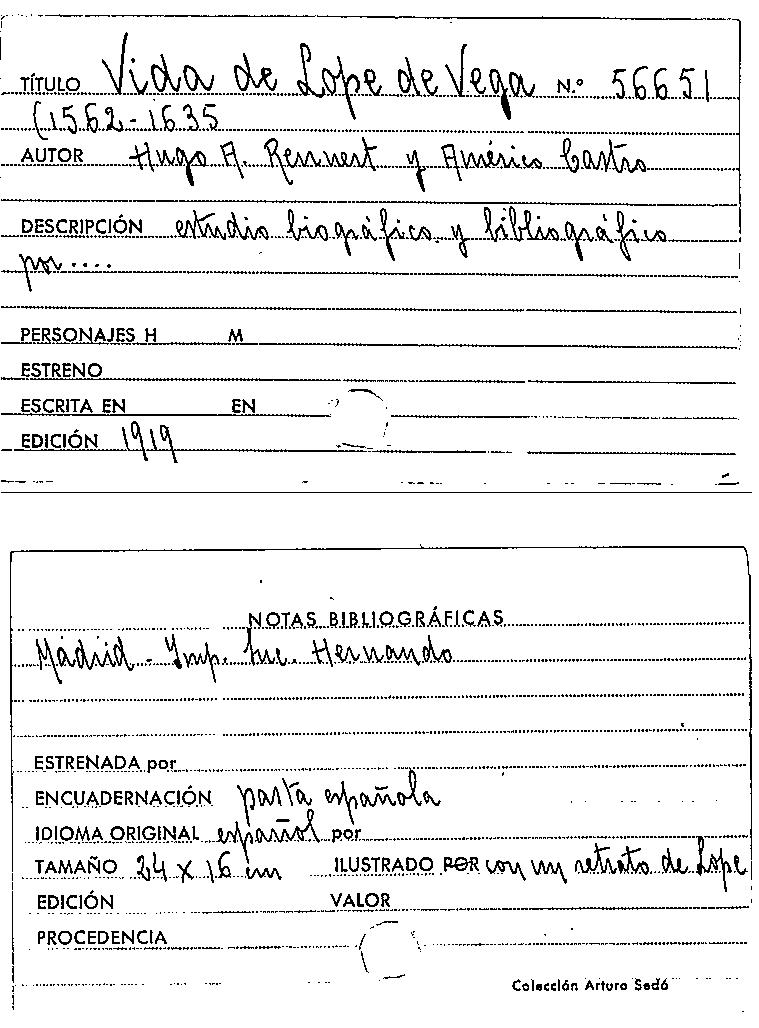 TÍTULO Vida de Lope de Vega N.º 56651
(1562-1635
AUTOR Hugo A. Rennert y Américo Castro
DESCRIPCIÓN estudio biográfico y bibliográfico
por....
PERSONAJES H M
ESTRENO
ESCRITA EN EN
EDICIÓN 1919
NOTAS BIBLIOGRÁFICAS
Madrid - Imp. Suc. Hernando
ESTRENADA por
ENCUADERNACIÓN pasta española
IDIOMA ORIGINAL español por
TAMAÑO 24 x 16 cm ILUSTRADO POR con un retrato de Lope
EDICIÓN VALOR
PROCEDENCIA
Colección Arturo Sedó